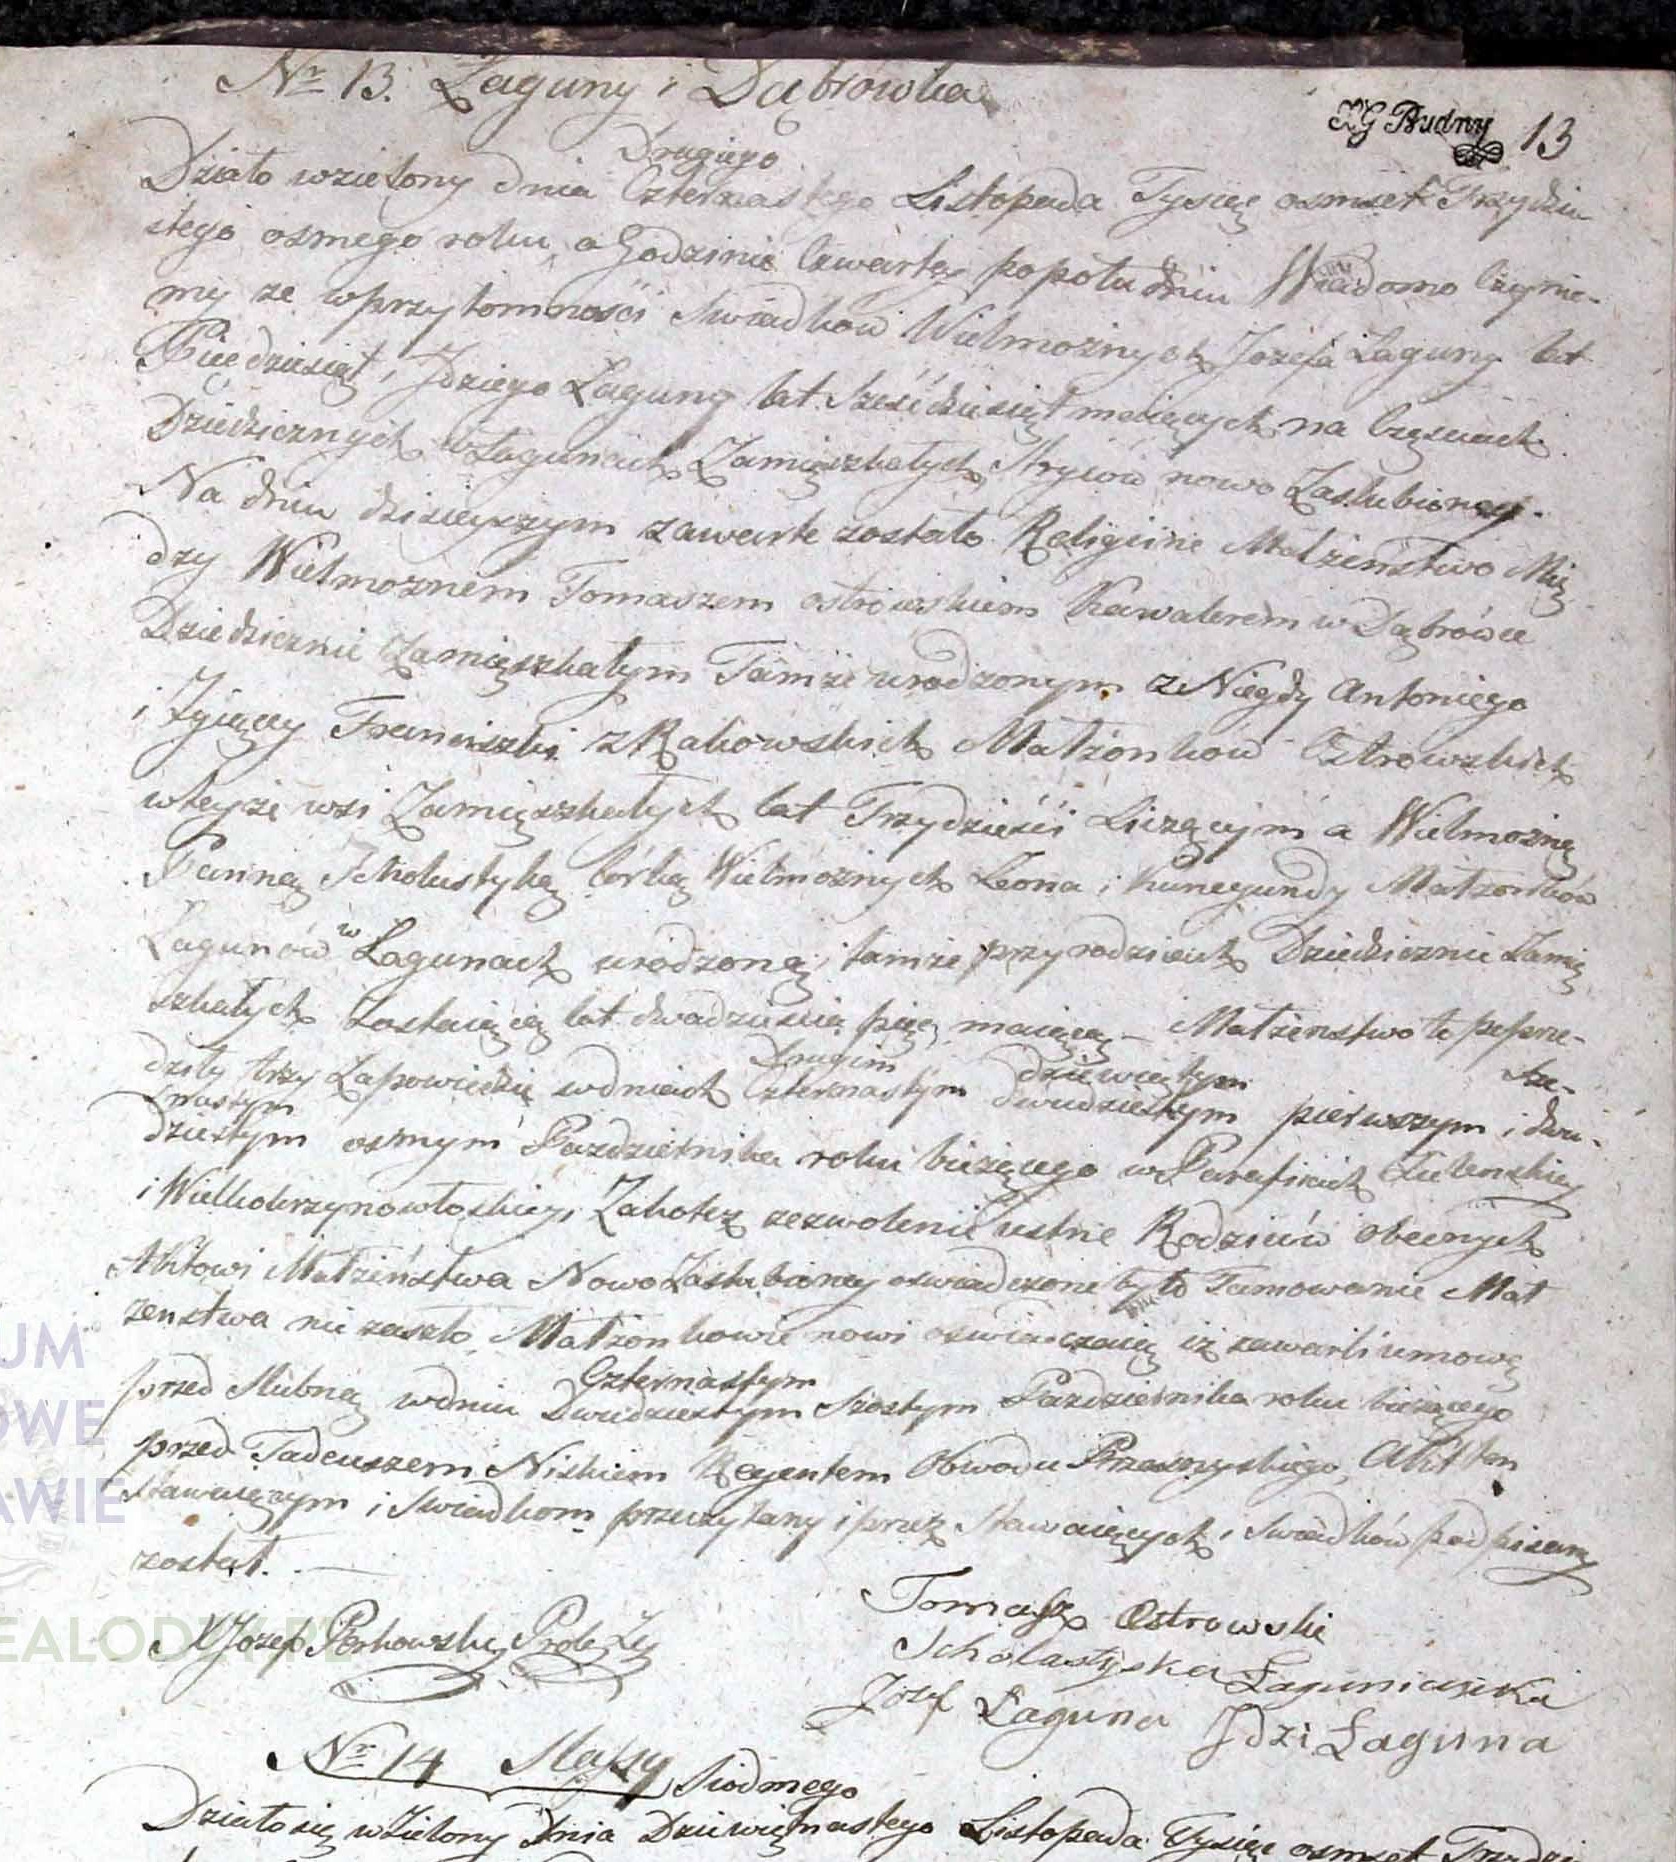 Nr 13. Łaguny i Dąbrówka
XG Budny 13
Drugiego
Działo wzielony dnia Czternastego Listopada Tysiąc osmset Trzydzie
stego osmego roku, o Godzinie Czwartey popołudniu Wiadomo Czynie-
my ze wprzytomnosci Swiadków Wielmożnych Jozefa Łaguny lat
Pięćdziesiąt, Jdziego Łaguny lat Sześćdziesiąt maiących na Częsciach
Dziedzicznych w Łagunach Zamięszkałych Stryiów nowo Zaslubioney.
Na dniu dzisieyszym zawarte zostało Religiine Małżeństwo Mię
dzy Wielmoznem Tomaszem ostrowskiem Kawalerem w Dąbrówce
Dziedzicznie Zamięszkałym Tamże urodzonym z Niegdy Antoniego
i Zyiącey Franciszki z Rakowskich Małżonków Ostrowskich
wteyże wsi Zamięszkałych lat Trzydzieści Liczącym a Wielmożną
Panną Scholastyką Córką Wielmożnych Leona i Kunegundy Małzonków
Łagunów w Łagunach urodzoną i tamże przy rodzicach Dziedzicznie Zamię
szkałych Zostaiącą lat dwadziescia pięć maiącą – Małżenstwo to poprze-
Drugim dziewiętym Sze-
dziły trzy Zapowiedzie wdniach Czternastym dwudziestym pierwszym i dwu-
snastym
dziestym osmym Pazdziernika roku bieżącego w Parafiach Zielenskiey
i Wielkokrzynowłoskiey, Zakotez zezwolenie ustne Rodziców obecnych
Aktowi Małżeństwa Nowo Zaslubioney oswiadczone było Tamowanie Mał
zenstwa nie zaszło, Małżonkowie nowi oswiadczaią iż zawarli umowę
Czternastym
przed slubną wdniu Dwudziestym Szostym Pazdziernika roku bieżącego
przed Tadeuszem Niskiem Rejentem Obwodu Przasnyskiego, Akt ten
Stawaiącym i Swiadkom przeczytany i przez Stawaiących i Swiadków podpisany
został. —
X Jozef Perkowski Prob: Zie
Tomasz Ostrowski
Scholastyka Łaguniaska
Józef Łaguna Jdzi Łaguna
Nr 14 Slasy
Siodmego
Działo się wZielony Dnia Dziewiętnastego Listopada Tysiąc osmset Trzydzi